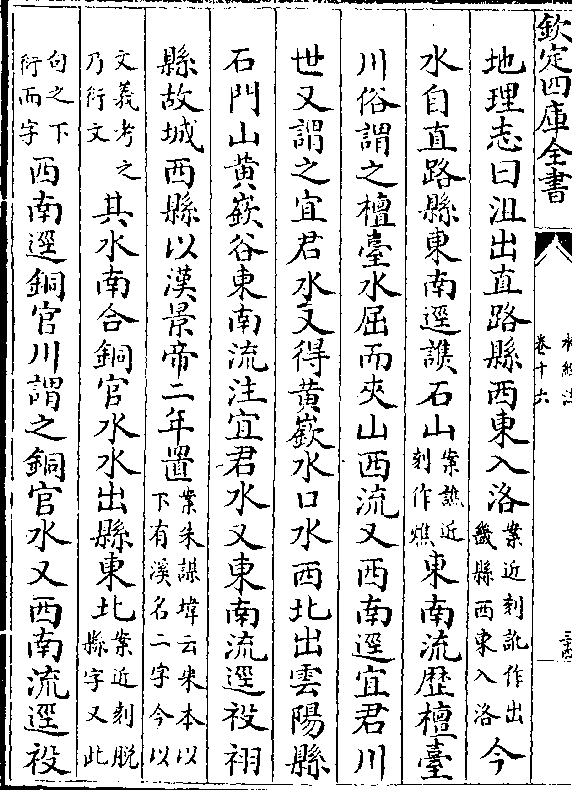 欽定四庫全書
卷十六
地理志曰沮出直路縣西東入洛案近刻訛作出畿縣西東入洛今
水自直路縣東南逕譙石山案譙近刻作燋東南流歴檀臺
川俗謂之檀臺水屈而夾山西流又西南逕宜君川
世又謂之宜君水又得黄嶔水口水西北出雲陽縣
石門山黄嶔谷東南流注宜君水又東南流逕祋祤
縣故城西縣以漢景帝二年置案朱謀㙔云宋本以下有溪名二字今以
文義考之乃衍文其水南合銅官水水出縣東北案近刻脱縣字又此
句之下衍而字西南逕銅官川謂之銅官水又西南流逕祋